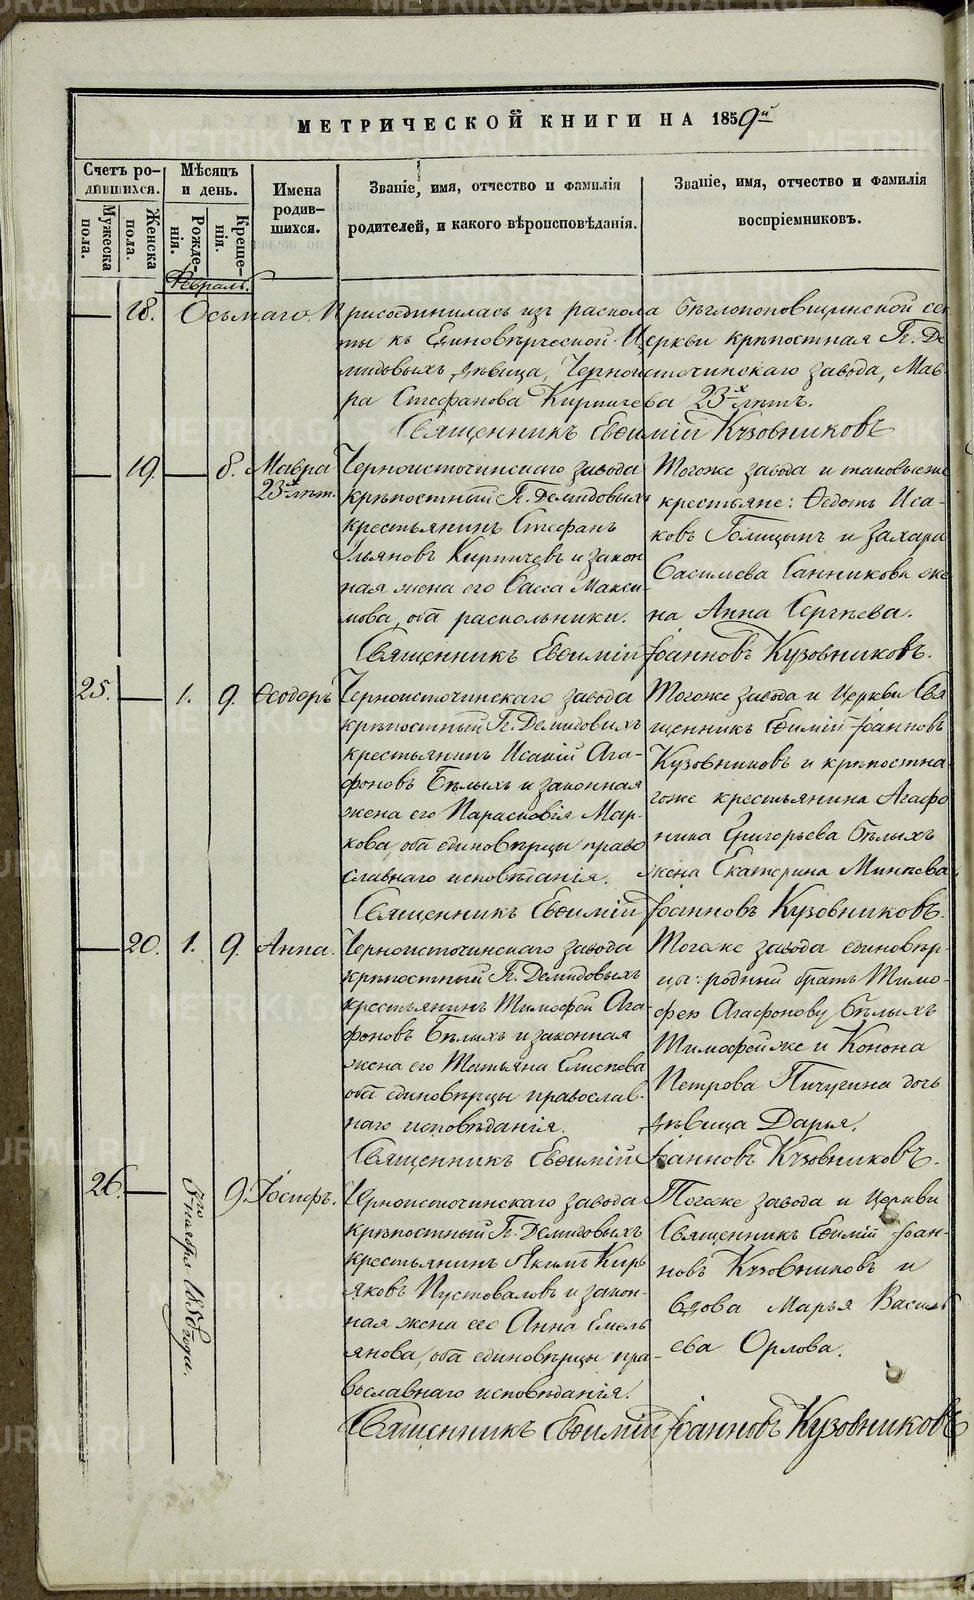 МЕТРИЧЕСКОЙ КНИГИ НА 1859й
Счетъ ро-
дившихся.
Мужеска
пола.
Женска
пола.
Мѣсяцъ
и день.
Рожде-
нія.
Креще-
нія.
Имена
родив-
шихся.
Званіе, имя, отчество и фамилія
родителей, и какого вѣроисповѣданія.
Званіе, имя, отчество и фамилія
воспріемниковъ.
Февраль.
18. Осьмаго. Присоединилась изъ раскола бѣглопоповщинской сек
ты къ Единовѣрческой Церкви крѣпостная Г. Де
мидовыхъ дѣвица, Черноисточинскаго завода, Мав-
ра Стефанова Кирпичева 23х лѣтъ.
Священникъ Евѳимій Кузовниковъ
19. 8. Мавра
23х лѣт.
Черноисточинскаго завода
крѣпостный Г. Демидовыхъ
крестьянинъ Стефанъ
Ульяновъ Кирпичевъ и закон
ная жена его Васса Макси-
мова, оба раскольники.
Тогоже завода и таковыеже
крестьяне: Ѳедотъ Иса-
ковъ Голицынъ и Захара
Васильева Санникова же
на Анна Сергѣева.
Священникъ Евѳимій Іоанновъ Кузовниковъ.
25. 1. 9. Ѳеодоръ
Черноисточинскаго завода
крѣпостный Г. Демидовыхъ
крестьянинъ Исакій Ага-
фоновъ Бѣлыхъ и законная
жена его Парасковія Мар-
кова, оба единовѣрцы право
славнаго исповѣданія.
Тогоже завода и Церкви Свя
щенникъ Евѳимій Іоанновъ
Кузовниковъ и крѣпостна-
гоже крестьянина Агафо
ника Григорьева Бѣлыхъ
жена Екатерина Минѣева
Священникъ Евѳимій Іоанновъ Кузовниковъ.
20. 1. 9. Анна.
Черноисточинскаго завода
крѣпостный Г. Демидовыхъ
крестьянинъ Тимофей Ага-
фоновъ Бѣлыхъ и законная
жена его Татьяна Елисѣева
оба единовѣрцы православ-
наго исповѣданія.
Тогоже завода единовѣр-
цы: родный братъ Тимо-
фею Агафонову Бѣлыхъ
Тимофейже и Конона
Петрова Пичугина дочь
дѣвица Дарья.
Священникъ Евѳимій Іоанновъ Кузовниковъ.
26. ноября 1858 года. 9. Іосифъ.
Черноисточинскаго завода
крѣпостный Г. Демидовыхъ
крестьянинъ Якимъ Кирь
яковъ Пустоваловъ и закон-
ная жена его Анна Емель
янова, оба единовѣрцы пра-
вославнаго исповѣданія.
Тогоже завода и Церкви
Священникъ Евѳимій Іоан-
новъ Кузовниковъ и
вдова Марья Василь
ева Орлова.
Священникъ Евѳимій Іоанновъ Кузовниковъ
METRIKI.GASO-URAL.RU